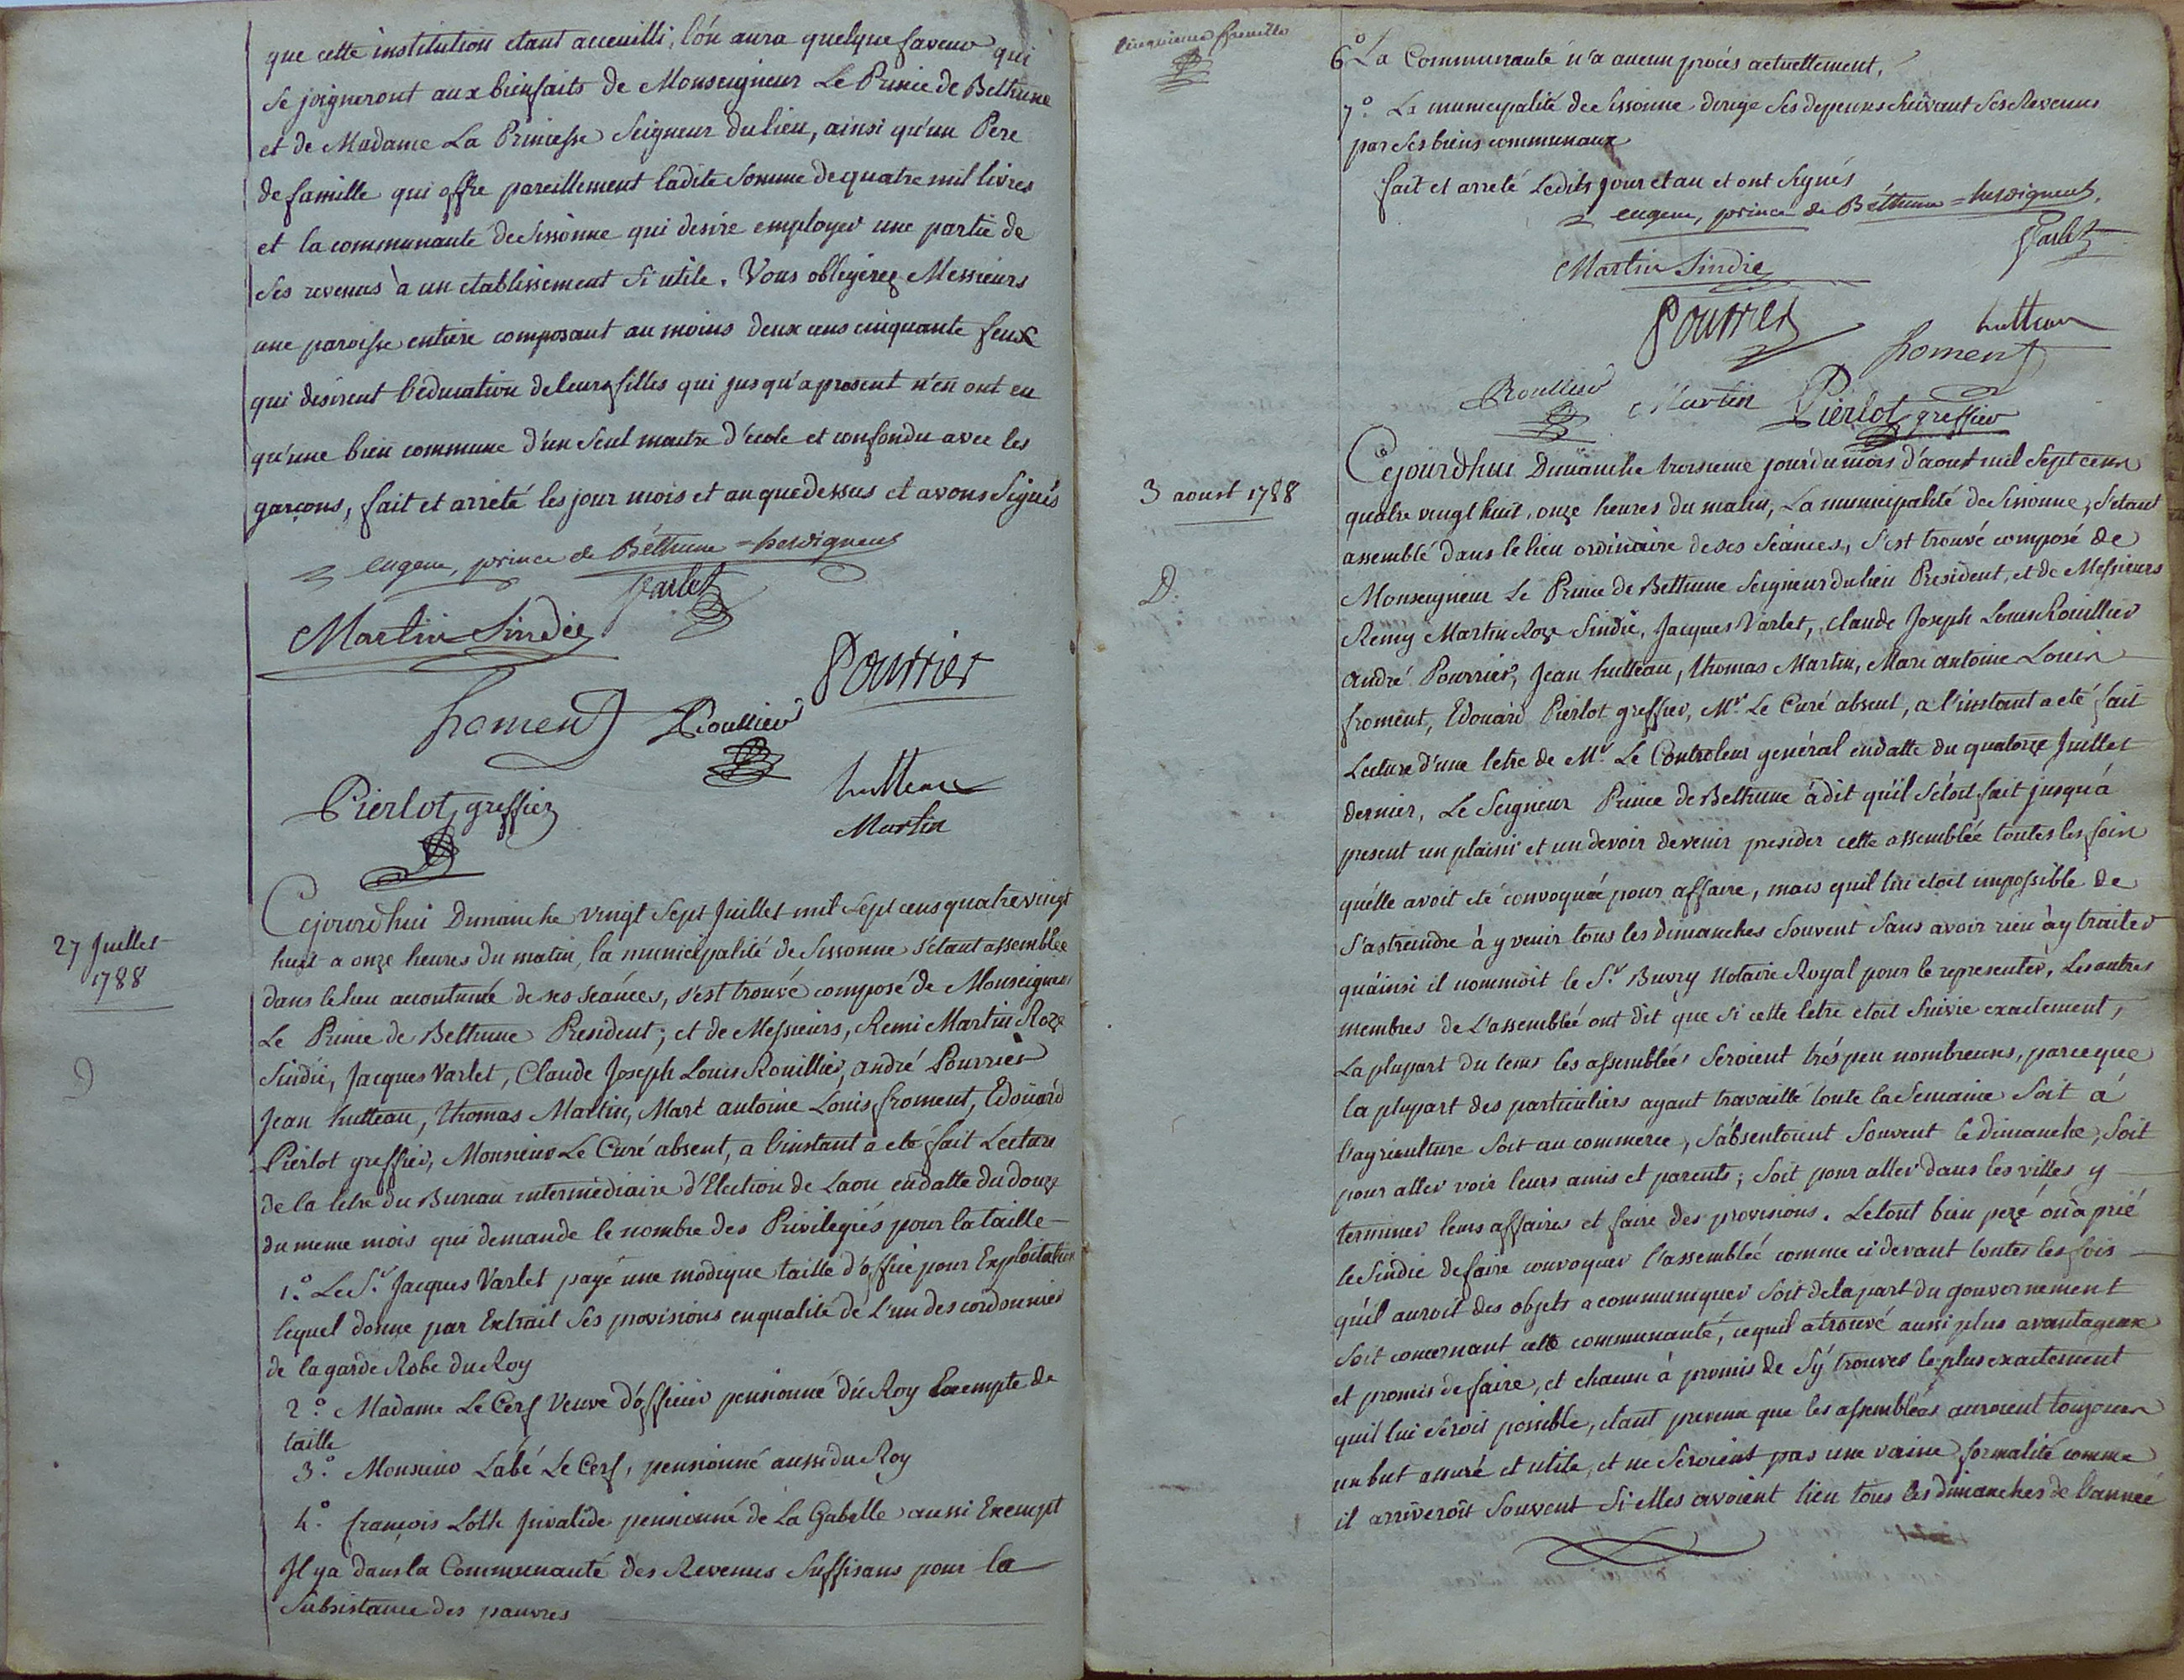 que cette institution etant acceuilli, l'on aura quelque faveur qui
se joigneront aux bienfaits de Monseigneur Le Prince de Bethune
et de Madame La Princesse Seigneur du lieu, ainsi qu'un Pere
de famille qui offre pareillement ladite Somme de quatre mil livres
et la communauté de Sissonne qui desire employer une partie de
ses revenus à un etablissement si utile. Vous obligerez Messieurs
une paroisse entiere composant au moins deux cens cinquante feux
qui desirent l'education de leurs filles qui jusqu'a present n'en ont eu
qu'une bien commune d'un seul maitre d'ecole et confondu avec les
garçons, fait et arrété les jour mois et an que dessus et avons Signés
eugene, prince de Béthune = hesdigneul
Varlet
Martin Sindic
Pourrier
froment Rouillier
hutteau
Pierlot greffier
Martin
27 Juillet
1788
Cejourd'hui Dimanche vingt Sept Juillet mil Sept cens quatre vingt
huit a onze heures du matin, la municipalité de Sissonne s'etant assemblée
dans le lieu accoutumé de ses seances, s'est trouvé composé de Monseigneur
Le Prince de Bethune President; et de Messieurs, Remi Martin Roze
Sindic, Jacques Varlet, Claude Joseph Louis Rouillier, andré Pourrier
Jean hutteau, thomas Martin, Marc antoine Louis froment, Edouard
Pierlot greffier, Monsieur Le Curé absent, a l'instant a eté fait Lecture
de la letre du Bureau intermédiaire d'Election de Laon en datte du douze
du meme mois qui demande le nombre des Privilegiés pour la taille
1.º Le S.r Jacques Varlet paye une modique taille d'office pour Exploitation
lequel donne par Extrait Ses provisions en qualité de L'un des cordonniers
de la garde Robe du Roy
2.º Madame Le Cerf Veuve d'officier pensionné du Roy Exempte de
taille
3.º Monsieur L'abé Le Cerf, pensionné aussi du Roy
4.º françois Loth Invalide pensionné de la Gabelle aussi Exempt
Il y a dans la Communauté des Revenus Suffisans pour la
Subsistance des pauvres
D
cinquieme feuille
6º La Communauté n'a aucun procés actuellement,
7.º La municipalité de Sissonne dirige Ses depenses Suivant Ses Revenus
par Ses biens communaux
fait et arreté Ledits jour et an et ont Signés
eugene, prince de Béthune = hesdigneul,
Varlet
Martin Sindic
Pourrier
hutteau
froment
Rouillier Martin Pierlot greffier
3 aoust 1788
D.
Cejourd'hui Dimanche troisieme jour du mois d'aoust mil Sept cens
quatre vingt huit, onze heures du matin, La municipalité de Sissonne, s'etant
assemblé dans le lieu ordinaire de ses Séances, s'est trouvé composé de
Monseigneur Le Prince de Bethune Seigneur du lieu President, et de Messieurs
Remy Martin Roze Sindic, Jacques Varlet, claude Joseph Louis Rouillier
andré Pourrier, Jean hutteau, thomas Martin, Marc antoine Louis
froment, Edouard Pierlot greffier, M.r Le Curé absent, a l'instant a eté fait
Lecture d'une letre de M.r Le Controleur général en datte du quatorze Juillet
dernier, Le Seigneur Prince de Bethune à dit qu'il s'étoit fait jusqu'à
present un plaisir et un devoir de venir presider cette assemblée toutes les fois
qu'elle avoit eté convoquée pour affaire, mais quil lui etoit impossible de
s'astreindre à y venir tous les dimanches souvent sans avoir rien à y traiter
qu'ainsi il nommoit le S.r Buvry Notaire Royal pour le representer, Les autres
membres de L'assemblée ont dit que si cette letre etoit suivie exactement,
La plupart du tems les assemblées seroient trés peu nombreuses, parceque
la plupart des particuliers ayant travaillé toute la Semaine Soit à
l'agriculture soit au commerce, s'absentoient souvent le dimanche, soit
pour aller voir leurs amis et parents; soit pour aller dans les villes y
terminer leurs affaires et faire des provisions. Le tout bien pezé on a prié
le Sindic de faire convoquer l'assemblée comme ci devant toutes les fois
qu'il auroit des objets a communiquer soit de la part du gouvernement
soit concernant cette communauté, ce qu'il a trouvé aussi plus avantageux
et promis de faire, et chacun à promis de s'y trouver le plus exactement
qu'il lui seroit possible, etant prevenu que les assemblées auroient toujours
un but assuré et utile, et ne Seroient pas une vaine formalité comme
il arriveroit Souvent Si elles avoient lieu tous les dimanches de l'année